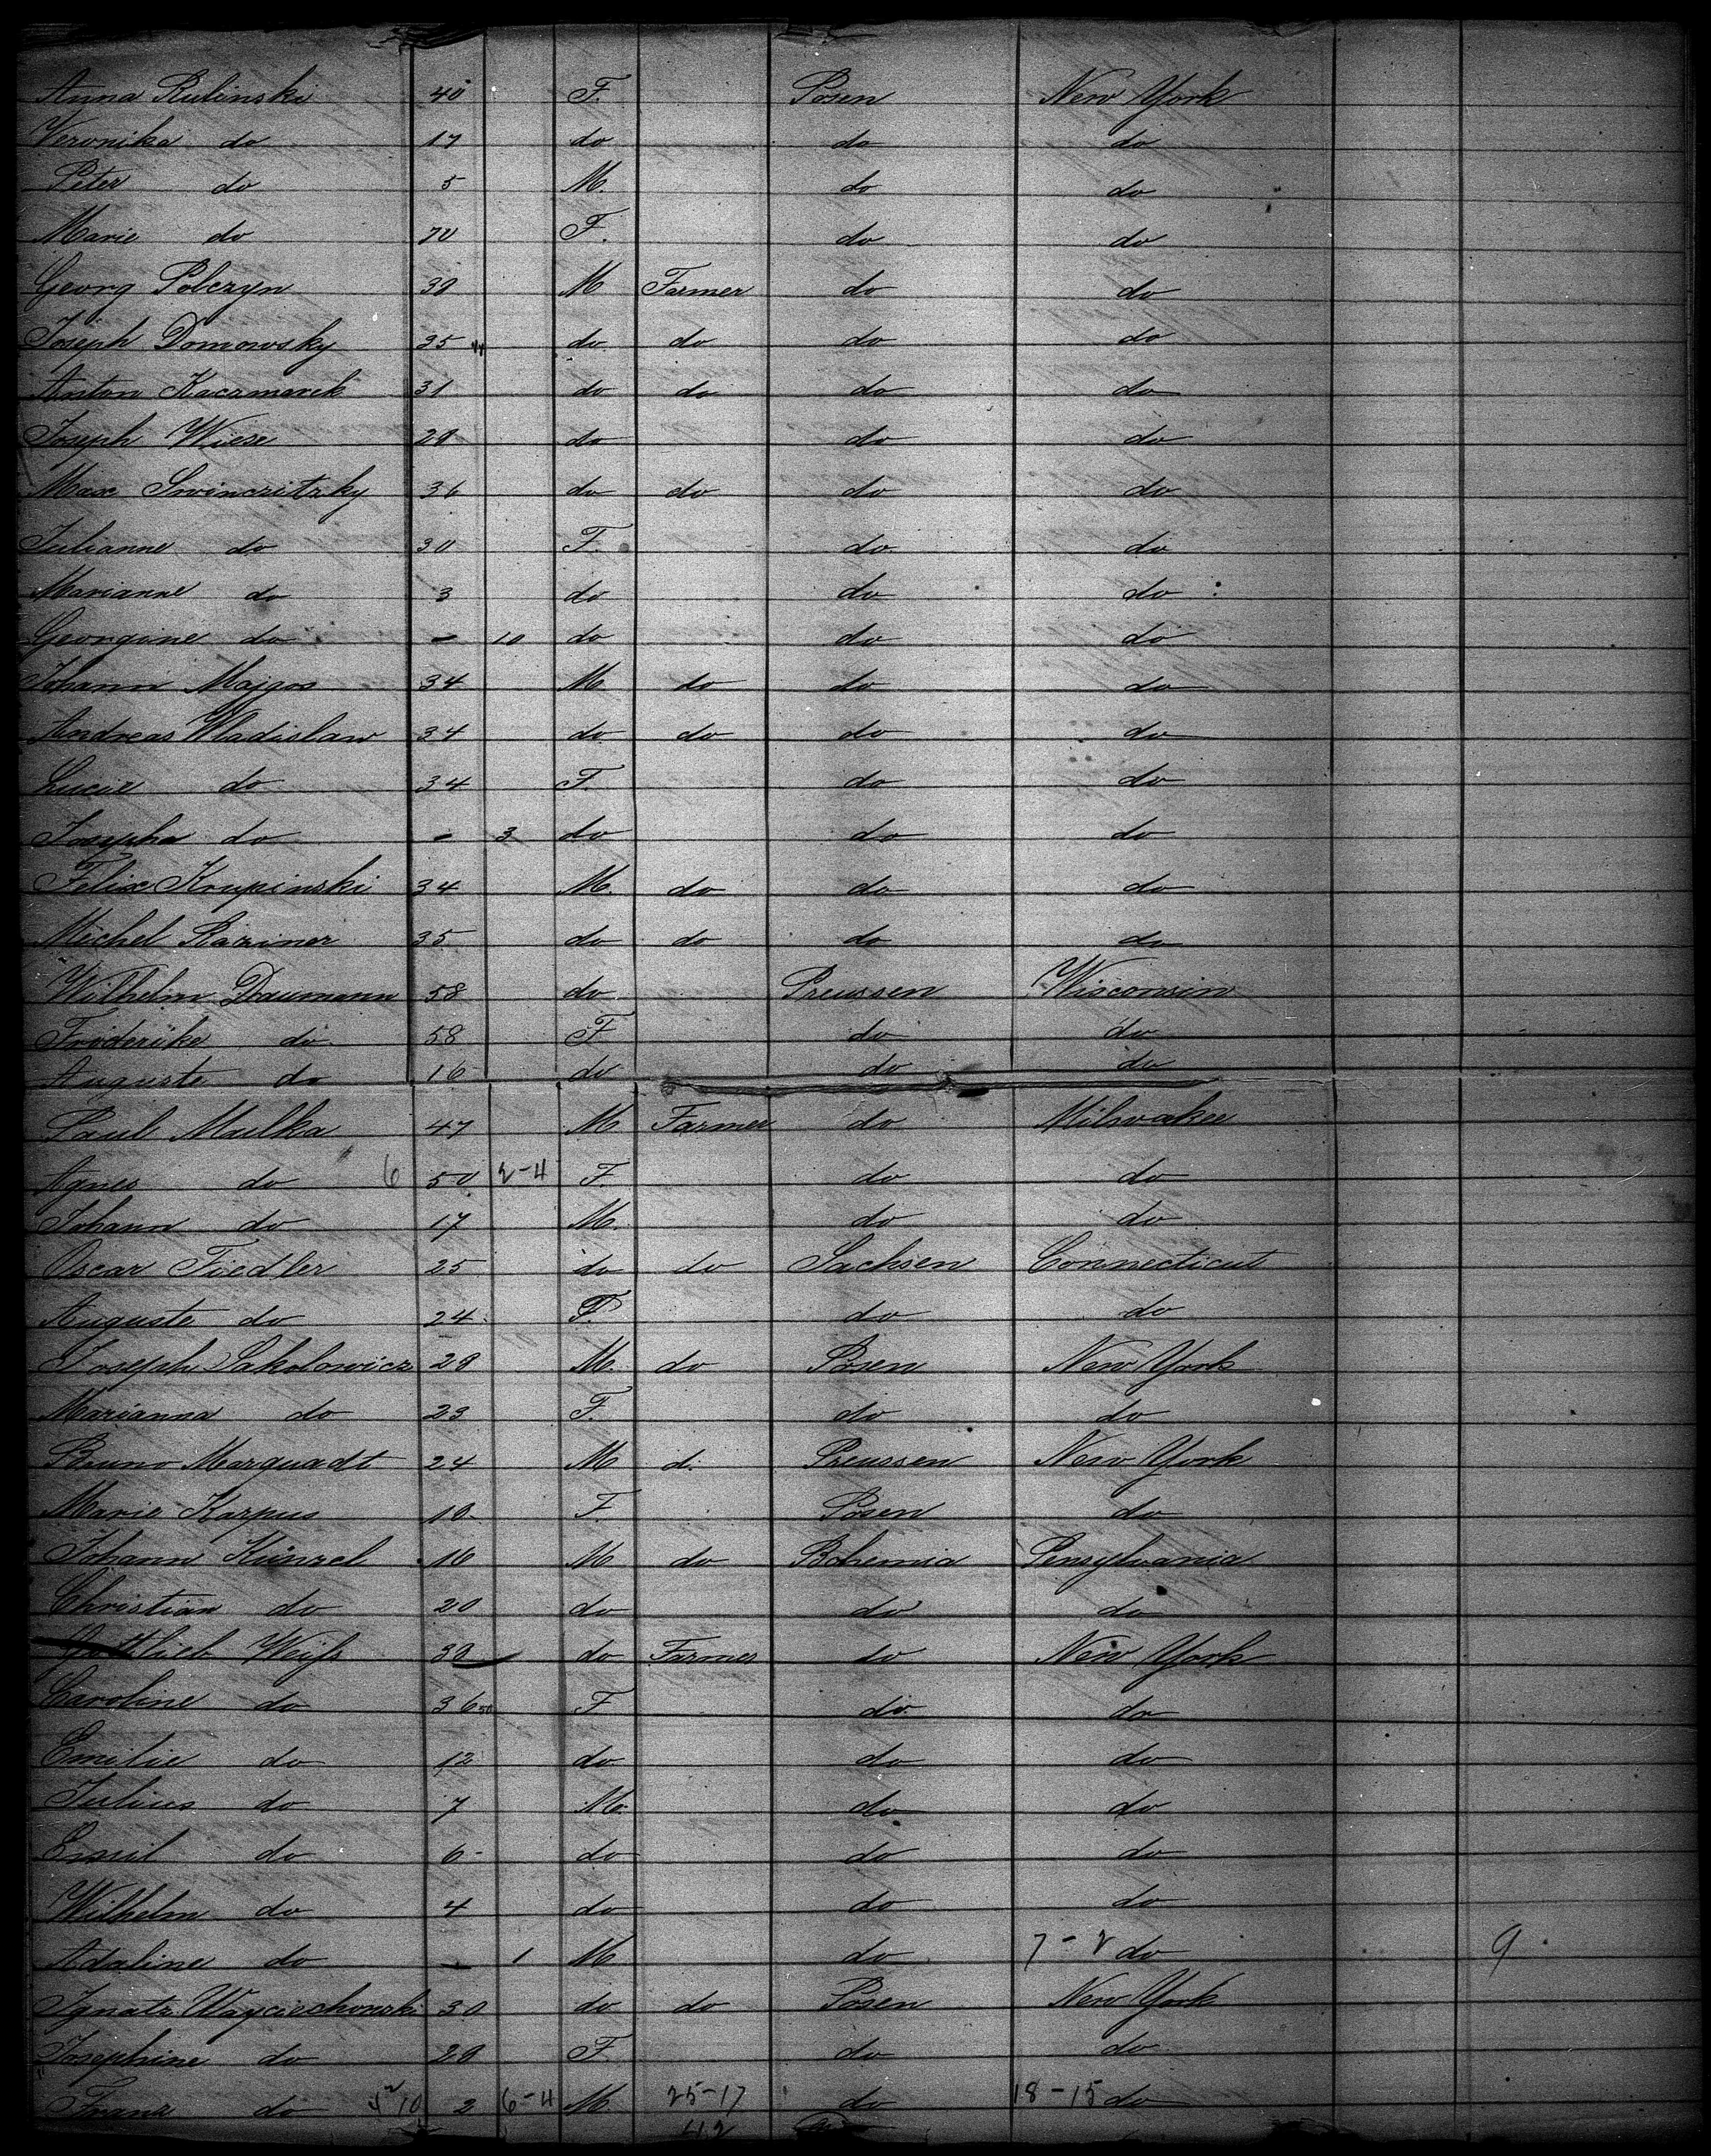 Anna Rulinski 40 F. Posen New York
Veronika do 17 do do do
Peter do 5 M. do do
Marie do 70 F. do do
Georg Polczyn 30 M Farmer do do
Joseph Domowsky 35 do do do do
Anton Kaczmarek 31 do do do do
Joseph Wiese 29 do do do
Max Swinczitzky 36 do do do do
Julianne do 30 F. do do
Marianne do 3 do do do
Georgine do - 10 do do do
Johann Majgos 34 M do do do
Andreas Wladislaw 34 do do do do
Lucie do 34 F. do do
Josepha do - 3 do do do
Felix Krupinski 34 M. do do do
Michel Raziner 35 do do do do
Wilhelm Daumann 58 do Preussen Wisconsin
Friderike do 58 F do do
Auguste do 16 do do do
Paul Mulka 47 M Farmer do Milwakee
Agnes do 6 50 2-4 F do do
Johann do 17 M. do do
Oscar Fiedler 25 do do Sachsen Connecticut
Auguste do 24 F. do do
Joseph Sakolowicz 29 M. do Posen New York
Marianna do 23 F. do do
Bruno Marquadt 24 M d. Preussen New York
Marie Karpus 19 F. Posen do
Johann Künzel 16 M do Bohemia Pensylvania
Christian do 20 do do do
Gottlieb Weiß 39 do Farmer do New York
Caroline do 36 F do do
Emilie do 12 do do do
Julius do 7 M. do do
Emil do 6 do do do
Wilhelm do 4 do do do
Adaline do - 1 M do 7-2 do 9
Ignatz Wayciechowski 30 do do Posen New York
Josephine do 29 F do do
Franz do 10 2 6-4 M. 25-17 do 18-15 do
42